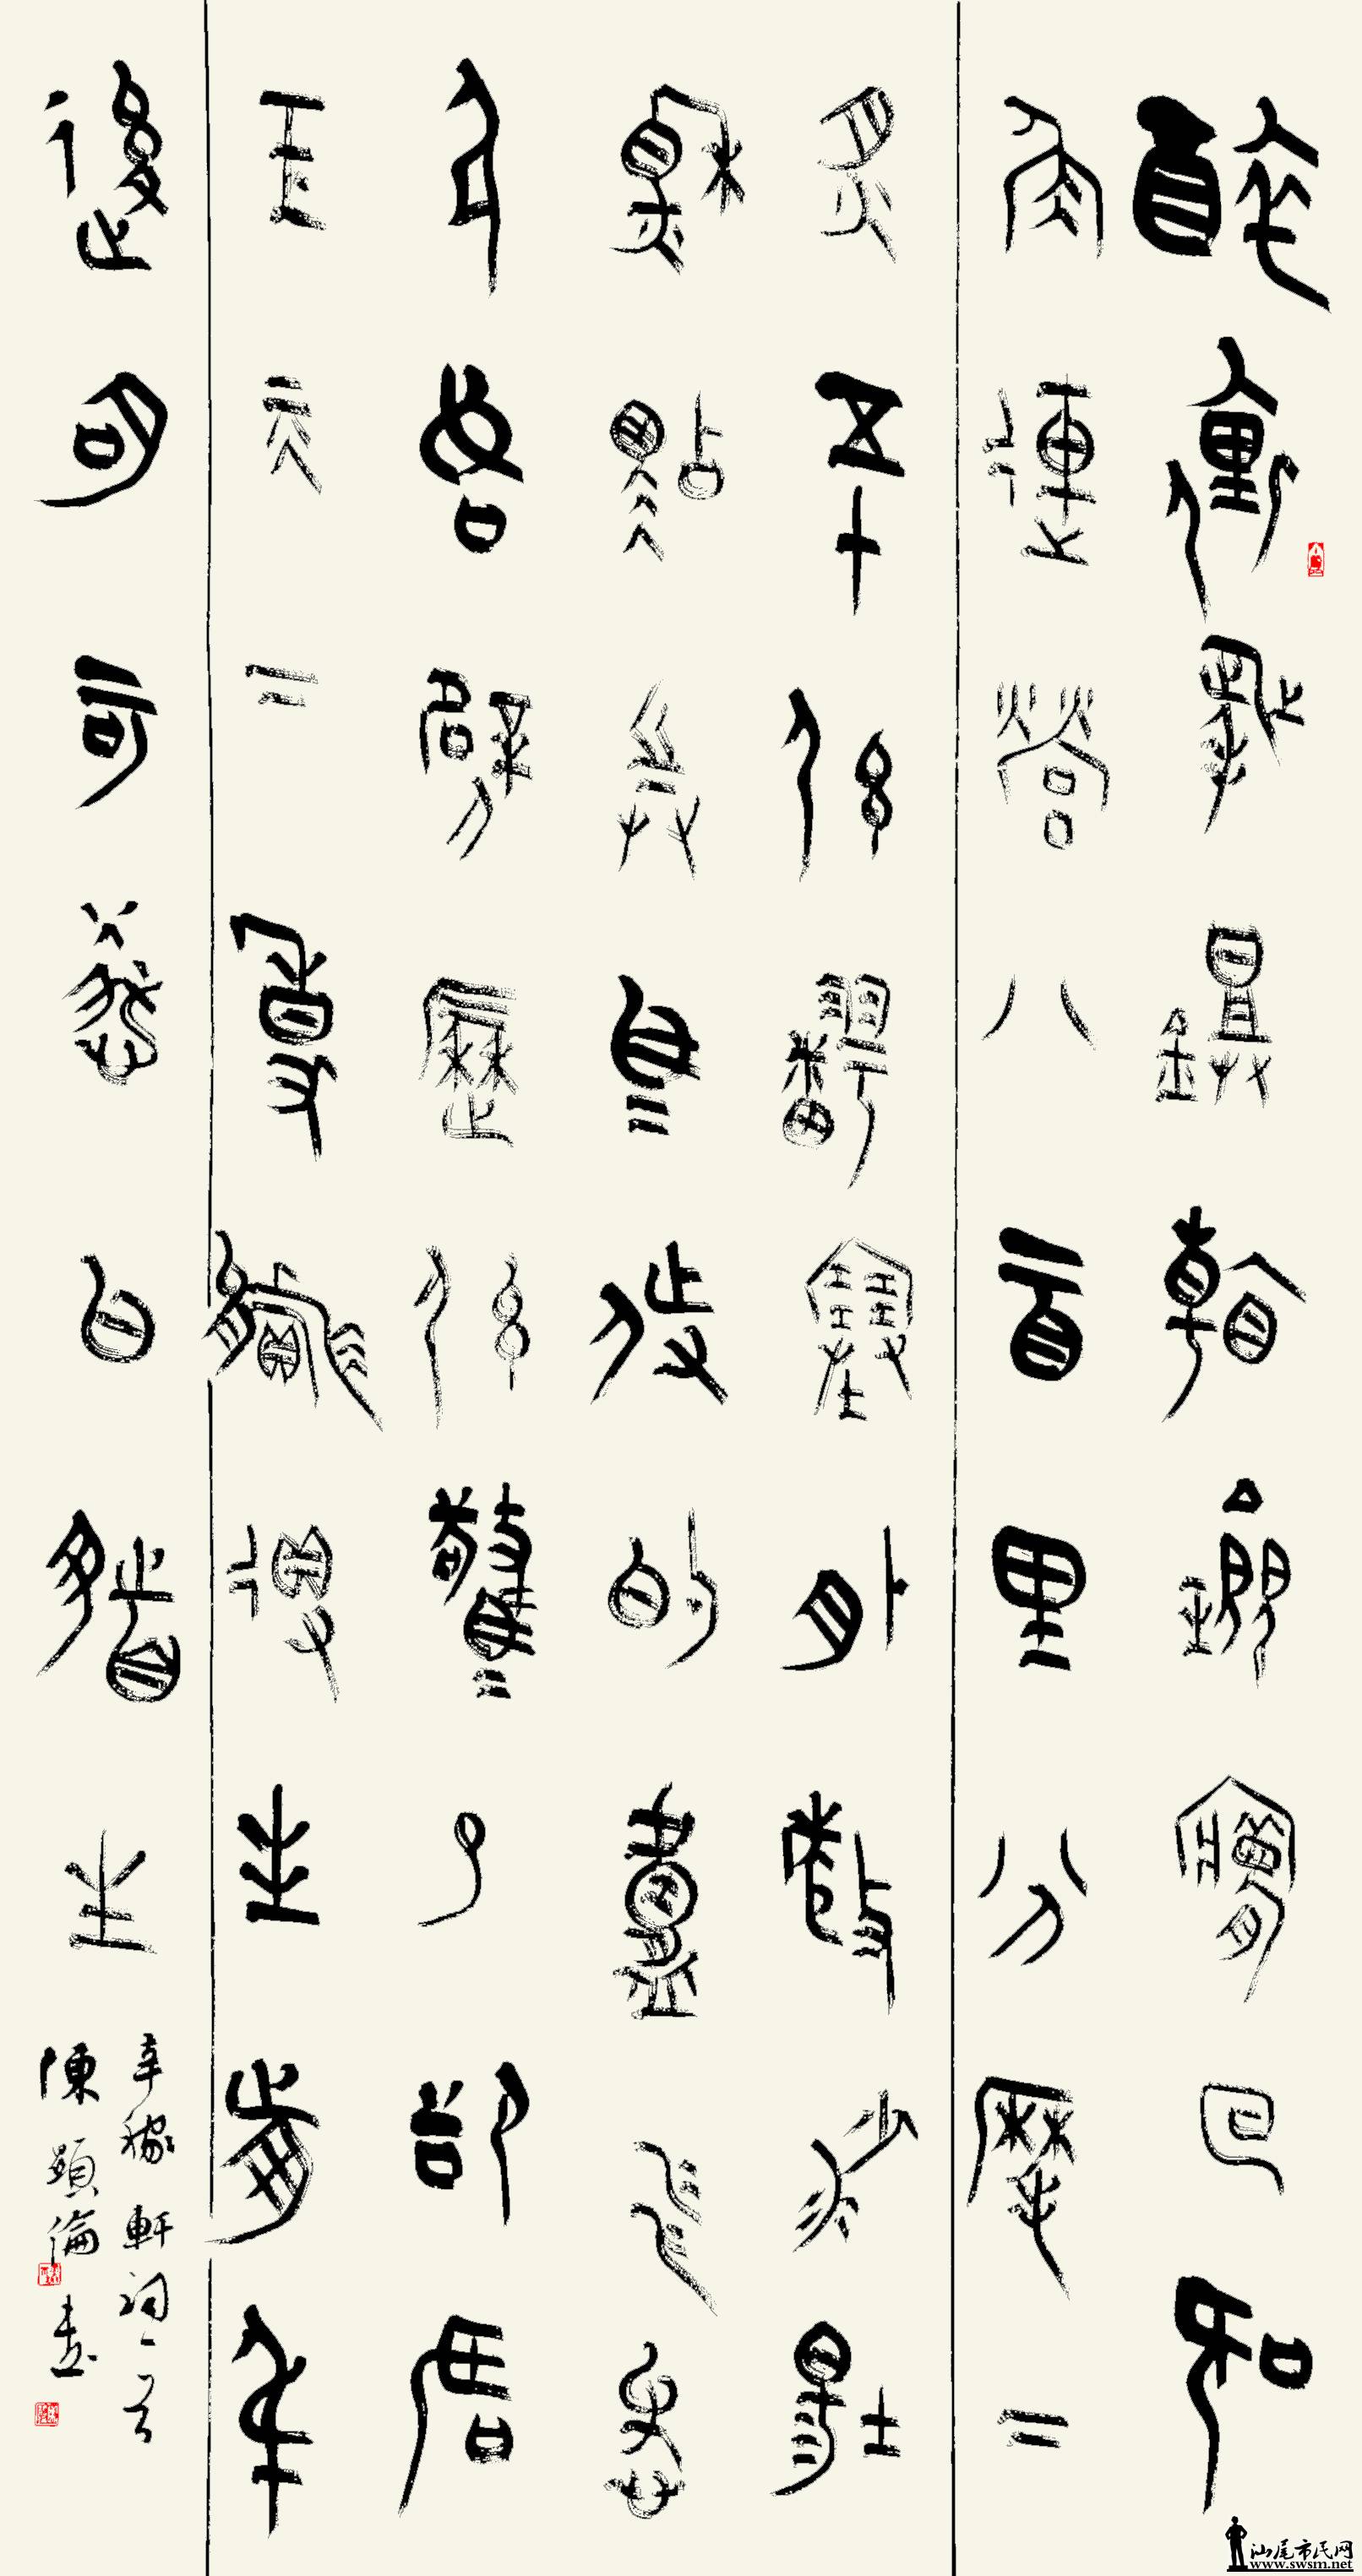 醉裏挑鐙看劍夢回吹
角連營八百里分麾下
炙五十弦翻塞外聲沙場
秋點兵馬作的盧飛快
弓如劈歷弦驚了卻君
王天下事贏得生前身
後名可憐白髮生
辛稼軒詞一首
陳顯倫書
汕尾市民网
www.swsm.net